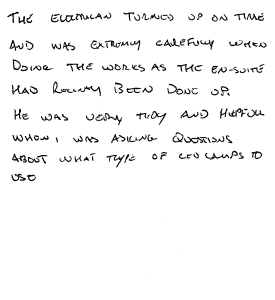 The Electrician turned up on time
and was extremly carefully when
Doing the works as the en-suite
had Recently Been Done up.
He was very tidy and helpfull
when I was asking Questions
about what type of LED lamps to
use